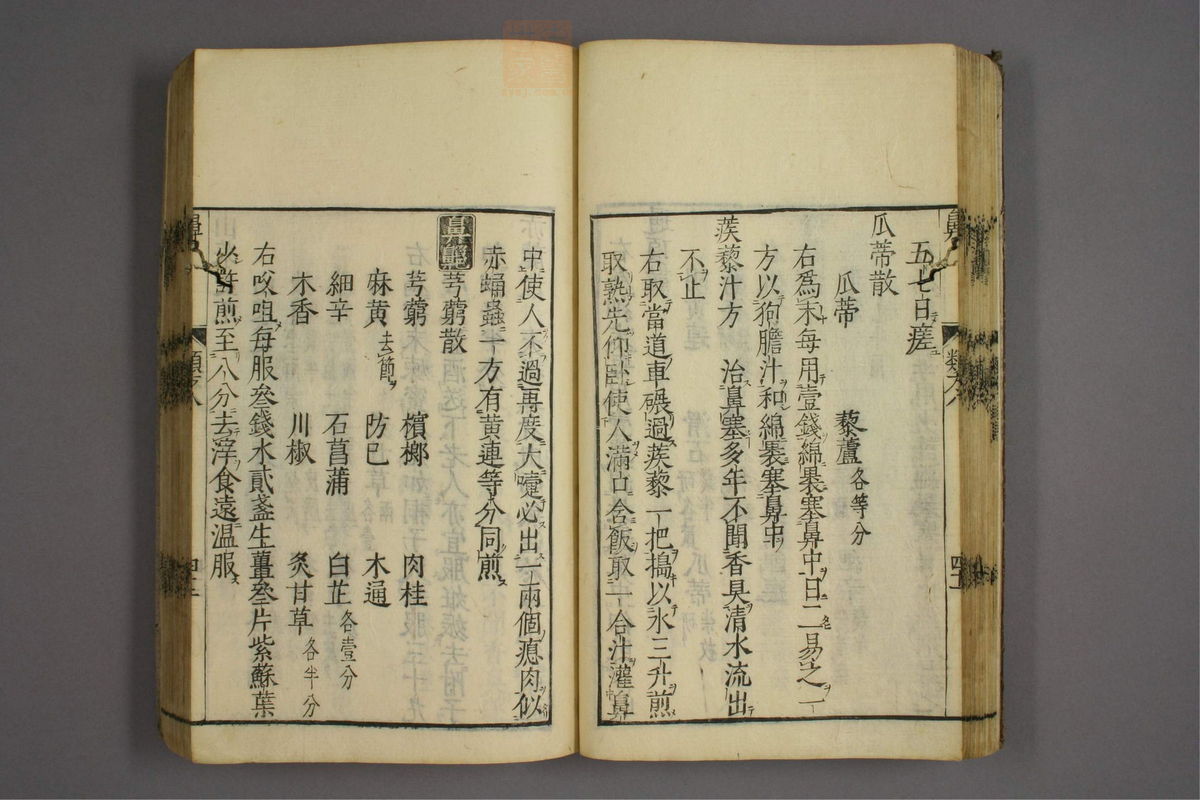 五七日瘥
瓜蒂散
瓜蒂 藜蘆各等分
右爲末每用壹錢綿裹塞鼻中日二易之一
方以狗膽汁和綿裹塞鼻中
蒺藜汁方 治鼻塞多年不聞香臭清水流出
不止
右取當道車碾過蒺藜一把搗以水三升煎
取熟先仰臥使人滿口含飯取一合汁灌鼻
中使人不過再度大嚏必出一兩個瘜肉似
赤蛹蟲一方有黄連等分同煎
芎藭散
芎藭 檳榔 肉桂
麻黄去節 防巳 木通
細辛 石菖蒲 白芷各壹分
木香 川椒 炙甘草各半分
右㕮咀每服叁錢水貳盞生薑叁片紫蘇葉
少許煎至八分去滓食遠温服